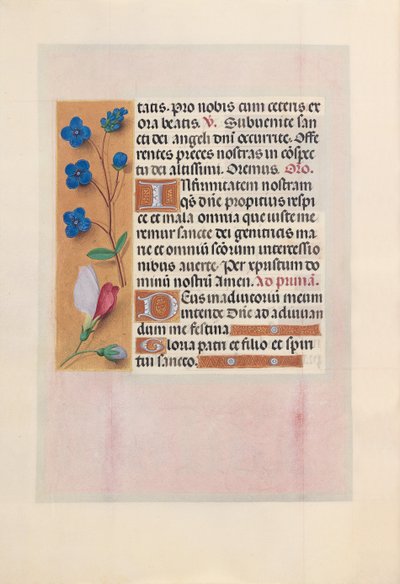 tatis. Pro nobis cum ceteris ex
ora beatis. V. Subuenite san
cti dei angeli dnī occurrite. Offe
rentes preces nostras in cōspe
ctu dei altissimi. Oremus. Oro.
Infirmitatem nostram
qs dn̄e propitius respi
ce et mala omnia que iuste me
remur sancte dei genitricis ma
rie et omniū scōrum intercessio
nibus auerte. Per xpristum do
minū nostrū Amen. Ad primā.
Deus in adiutorium meum
intende Dn̄e ad adiuuan
dum me festina.
Gloria patri et filio et spiri
tui sancto.